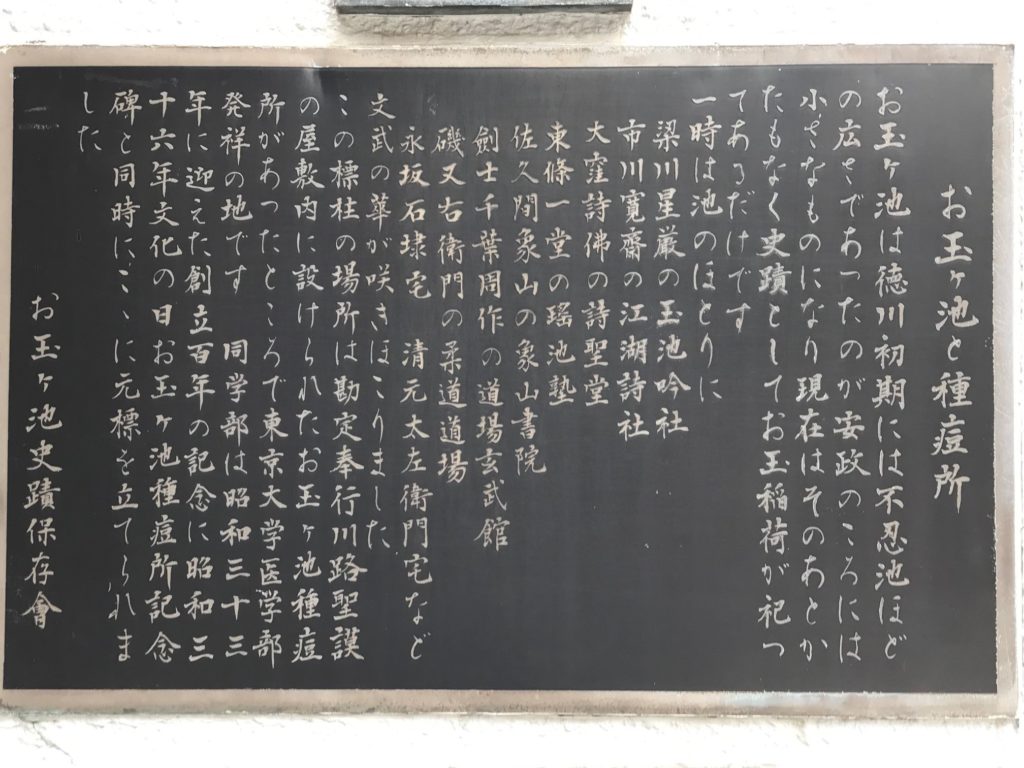 お玉ヶ池と種痘所
お玉ヶ池は徳川初期には不忍池ほど
の広さであったのが安政のころには
小さなものになり現在はそのあとか
たもなく史蹟としてお玉稲荷が祀つ
てあるだけです
一時は池のほとりに
梁川星巌の玉池吟社
市川寛齋の江湖詩社
大窪詩佛の詩聖堂
東條一堂の瑤池塾
佐久間象山の象山書院
劍士千葉周作の道場玄武館
磯又右衛門の柔道道場
永坂石埭宅 清元太左衛門宅など
文武の華が咲きほこりました
この標柱の場所は勘定奉行川路聖謨
の屋敷内に設けられたお玉ヶ池種痘
所があったところで東京大学医学部
発祥の地です 同学部は昭和三十三
年に迎えた創立百年の記念に昭和三
十六年文化の日お玉ヶ池種痘所記念
碑と同時にこゝに元標を立てられま
した
お玉ヶ池史蹟保存會